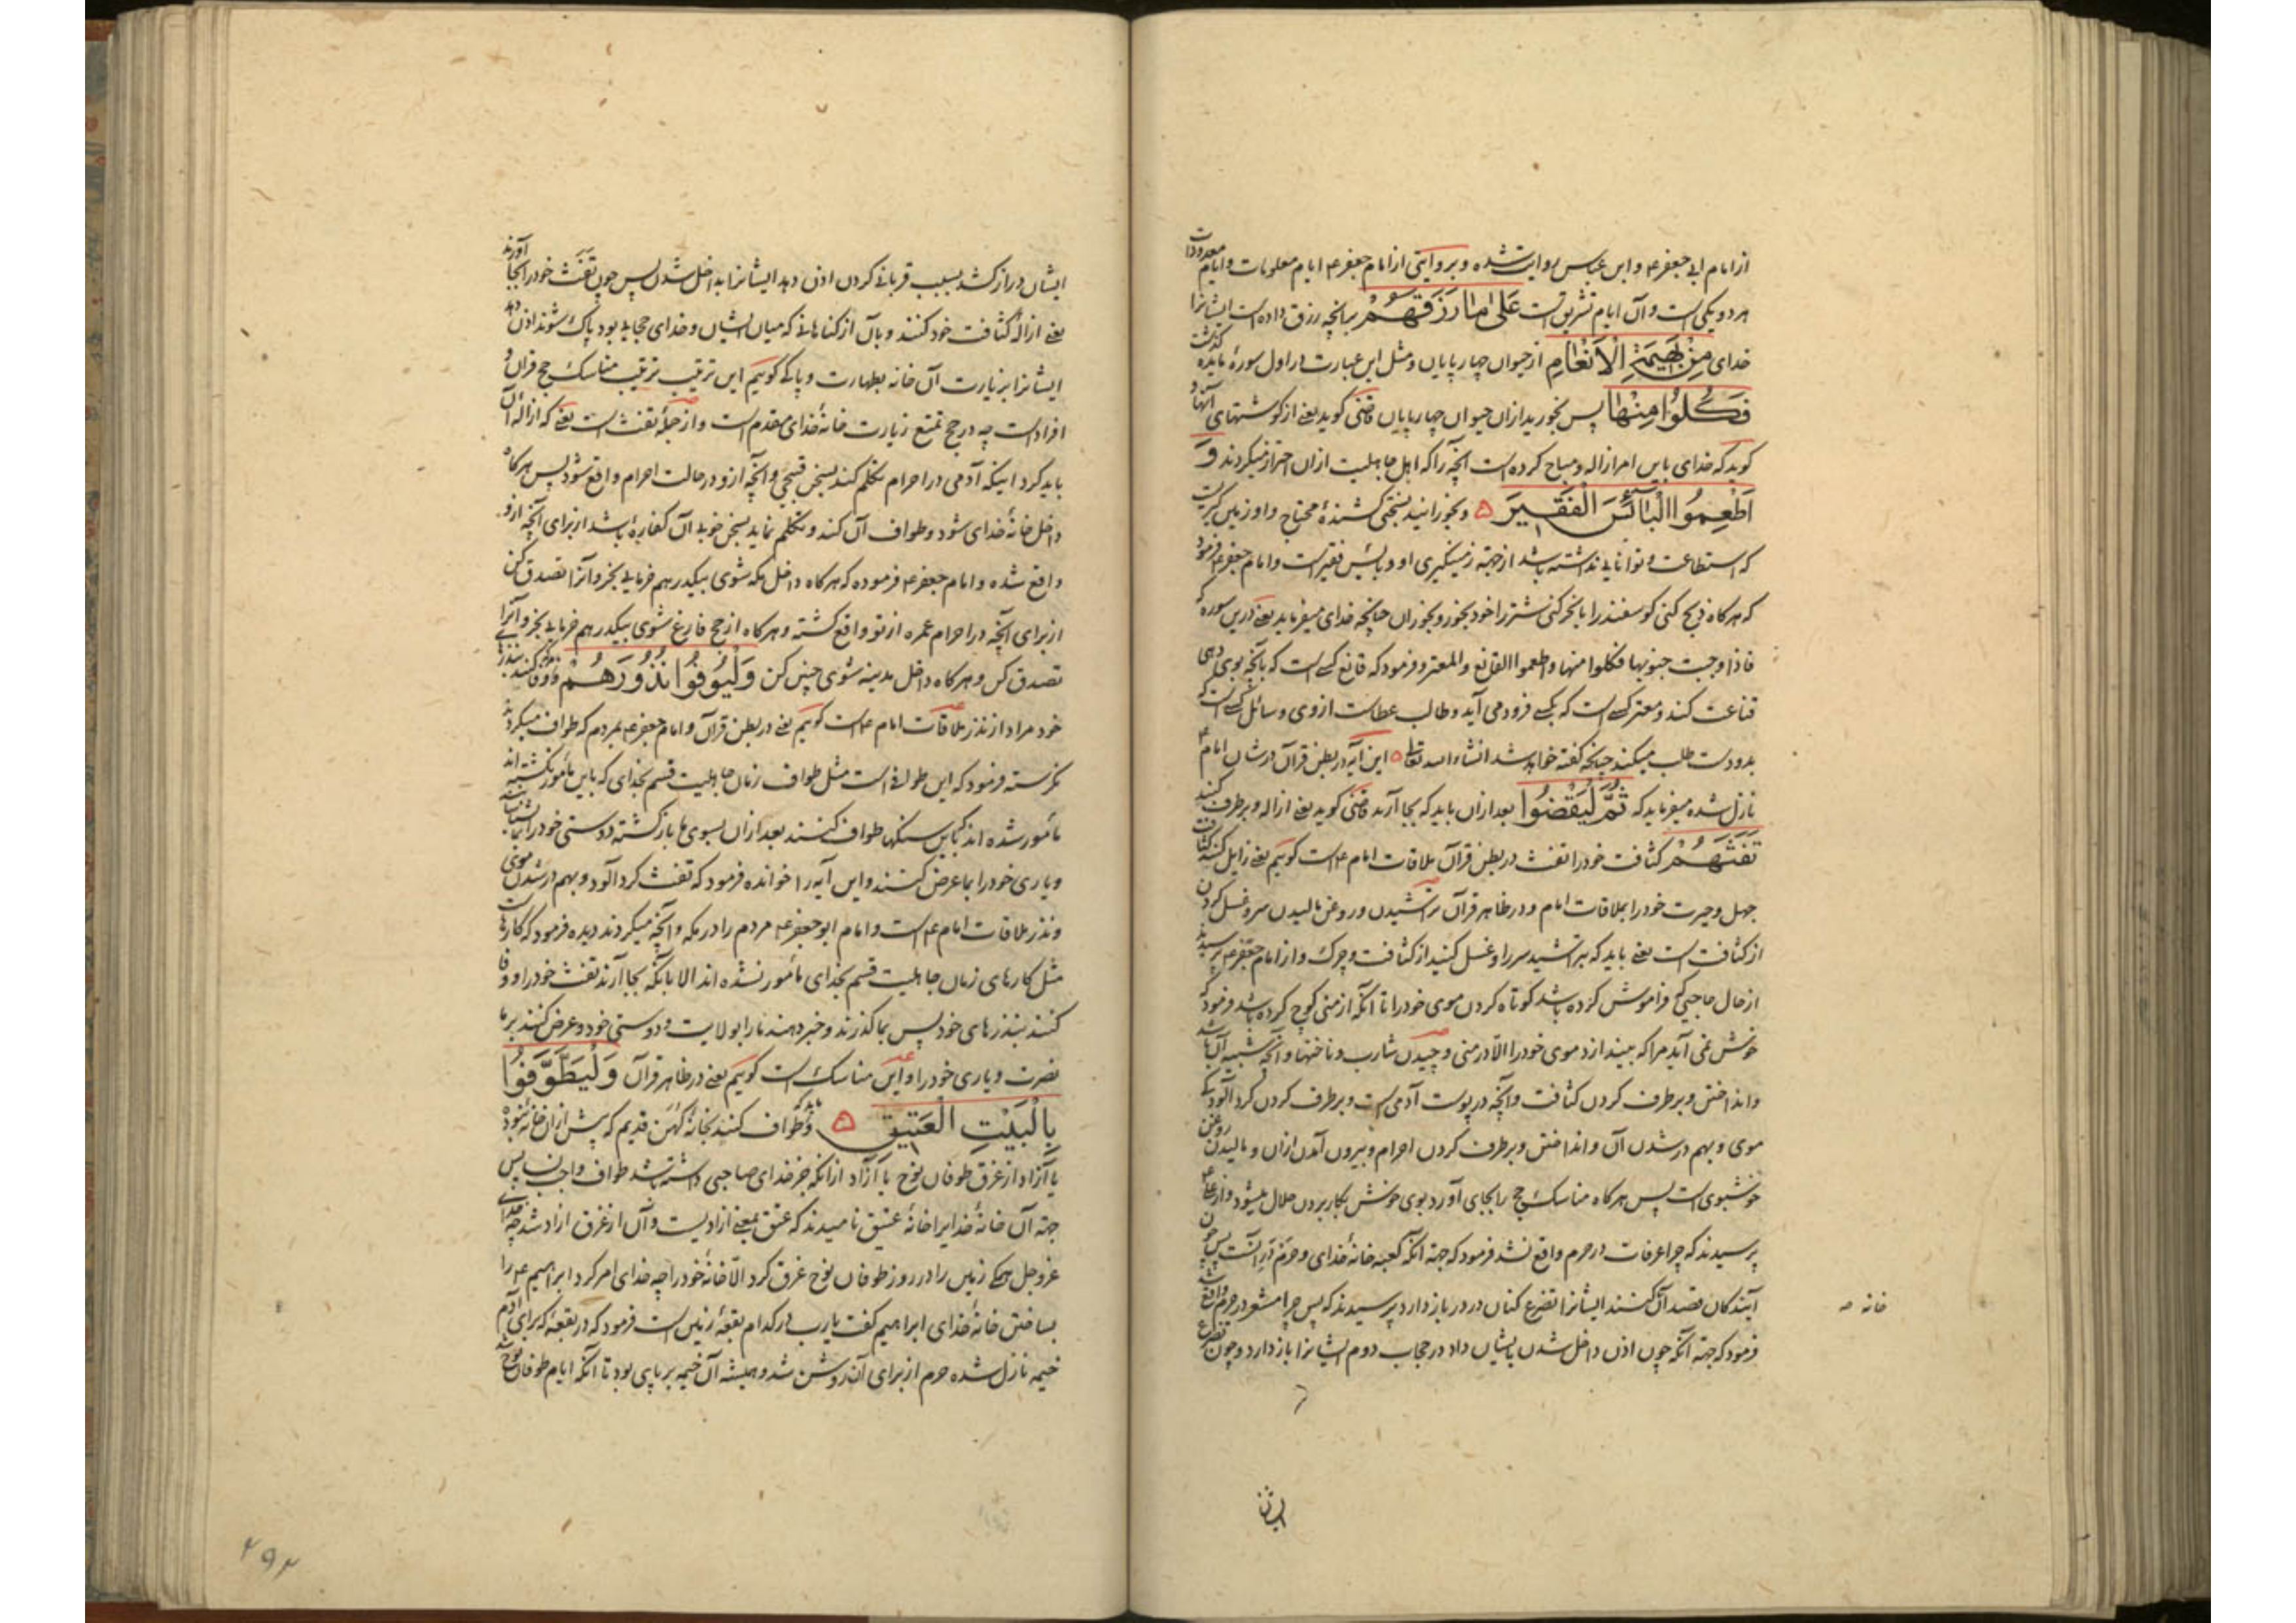 از امام ابی جعفر ع و ابن عباس روایت شده و بروایتی از امام جعفر ع ایام معلومات و ایام معدودات
هر دو یکی است و آن ایام تشریق است عَلىٰ مٰا رَزَقَهُمْ بر آنچه رزق داده است ایشانرا
خدای مِنْ بَهِيمَةِ الْأَنْعٰامِ از حیوان چهارپایان و مثل این عبارت در اول سورهٔ مایده گذشت
فَكُلُوا مِنْهٰا پس بخورید ازان حیوان چهارپایان قاضی گوید یعنی از گوشتهای آنها و
گوید که خدای باین امر ازاله و مباح کرده است آنچه را که اهل جاهلیت ازان احتراز میکردند وَ
أَطْعِمُوا الْبٰائِسَ الْفَقِيرَ ۵ و بخورانید بسختی کشندهٔ محتاج و او زمین‌گیریست
که استطاعت و توانایی نداشته باشد از جهة زمینگیری او و بائس فقیر است و امام جعفر ع فرمود
که هرگاه ذبح کنی گوسفند را یا نحر کنی شتر را خود بخور و بخوران چنانچه خدای میفرماید یعنی درین سوره که
فاذا وجبت جنوبها فکلوا منها و اطعموا القانع والمعتر و فرمود که قانع کسی است که بآنچه بوی دهی
قناعت کند و معتر کسی است که بکسی فرود می آید و طالب عطاست ازوی و سائل کسی است که
بدو دست طلب میکند چنانچه گفته خواهد شد انشاء الله تعالی ۵ این آیه در بطن قرآن در شان امام ع
نازل شده میفرماید که ثُمَّ لْيَقْضُوا بعد ازان باید که بجا آرند قاضی گوید یعنی ازاله و برطرف کنند
تَفَثَهُمْ کثافت خود را تفث در بطن قرآن ملاقات امام ع است گوییم یعنی زایل کنند کثافت
جهل و حیرت خود را بملاقات امام و در ظاهر قرآن تراشیدن و روغن مالیدن سر و غسل کردن
از کثافت است یعنی باید که بتراشید سر را و غسل کنید از کثافت و چرک و از امام جعفر ع پرسیدند
از حال حاجیی که فراموش کرده باشد کوتاه کردن موی خود را تا آنکه از منی کوچ کرده باشد فرمود که
خوش نمی آید مرا که بیندازد موی خود را الّا در منی و چیدن شارب و ناخنها و آنچه شبیه آن باشد
و انداختن و برطرف کردن کثافت و آنچه در پوست آدمی است و برطرف کردن گردآلودیکی
موی و بهم در شدن آن و انداختن و برطرف کردن احرام و بیرون آمدن ازان و مالیدن روغن
خوشبوی است پس هرگاه مناسک حج را بجای آورد بوی خوش بکار بردن حلال میشود و از علی ع
پرسیدند که چرا عرفات در حرم واقع نشد فرمود که جهة آنکه کعبه خانهٔ خدای و حرم درِ آنست پس چون
آیندگان قصد آن کنند ایشانرا تضرع کنان در در باز دارد پرسیدند که پس چرا مشعر در حرم واقع شد
خانه صه
فرمود که جهة آنکه چون اذن داخل شدن بایشان داد در حجاب دوم ایشانرا باز دارد و چون تضرع
ایشان
ایشان دراز کشد بسبب قربانی کردن اذن دهد ایشانرا بداخل شدن پس چون تَفَث خود را بجا آورند
یعنی ازالهٔ کثافت خود کنند و بآن از گناهانی که میان ایشان و خدای حجاب بود پاک شوند اذن دهد
ایشانرا بزیارت آن خانه بطهارت و پاکی گوییم این ترتیب ترتیب مناسک حج قران و
افراد است چه در حج تمتع زیارت خانهٔ خدای مقدم است و از جملهٔ تفث است یعنی که ازالهٔ آن
باید کرد اینکه آدمی در احرام تکلم کند بسخن قبیحی و آنچه ازو در حالت احرام واقع شود پس هرگاه
داخل خانهٔ خدای شود و طواف آن کند و تکلم نماید بسخن خوب آن کفاره باشد از برای آنچه ازو
واقع شده و امام جعفر ع فرموده که هرگاه داخل مکه شوی بیکدرهم خرمایی بخر و آنرا تصدق کن
از برای آنچه در احرام عمره از تو واقع گشته و هرگاه از حج فارغ شوی بیکدرهم خرمایی بخر و آنرا
تصدق کن و هرگاه داخل مدینه شوی چنین کن وَلْيُوفُوا نُذُورَهُمْ و باید وفا کنند بنذرهای
خود مراد از نذر ملاقات امام ع است گوییم یعنی در بطن قرآن و امام جعفر ع بمردم که طواف میکردند
نگرسته فرمود که این طوافی است مثل طواف زمان جاهلیت قسم بخدای که باین مأمور نگشته اند
مأمور شده اند که باین سنگها طواف کنند بعد ازان بسوی ما بازگشته دوستی خود را بما بشناسانند
و یاری خود را بما عرض کنند و این آیه را خوانده فرمود که تفث گردآلود و بهم در شدن موی
و نذر ملاقات امام ع است و امام ابو جعفر ع مردم را در مکه و آنچه میکردند دیده فرمود که کارهاست
مثل کارهای زمان جاهلیت قسم بخدای مأمور نشده اند الا بآنکه بجا آرند تفث خود را و وفا
کنند بنذرهای خود پس بما گذرند و خبر دهند ما را بولایت و دوستی خود و عرض کنند بر ما
نصرت و یاری خود را و این مناسک است گوییم یعنی در ظاهر قرآن وَلْيَطَّوَّفُوا
بِالْبَيْتِ الْعَتِيقِ ۵ و باید که طواف کنند بخانهٔ کهن قدیم که پیش ازان خانهٔ نبوده
یا آزاد از غرق طوفان نوح یا آزاد ازانکه جز خدای صاحبی داشته باشد طواف واجب نساء پس
جهة آن خانهٔ خدایرا خانهٔ عتیق نامیدند که عتق بمعنی آزادیست و آن از غرق آزاد شد چه خدای
عزوجل همگی زمین را در روز طوفان نوح غرق کرد الّا خانهٔ خود را چه خدای امر کرد ابراهیم ع را
بساختن خانهٔ خدای ابراهیم گفت یارب در کدام بقعهٔ زمین است فرمود که در بقعهٔ که برای آدم
خیمه نازل شده حرم از برای آن روشن شد و همیشه آن خیمه برپای بود تا آنکه ایام طوفان نوح شد
۴۹۳